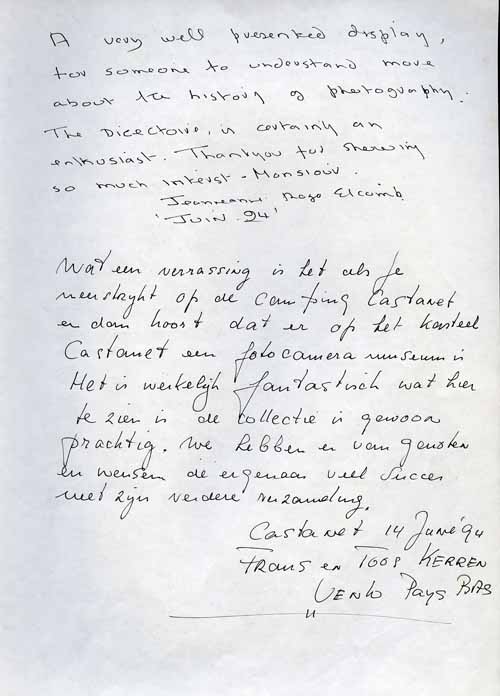 A very well presented display,
for someone to understand more
about the history of photography.
The Directoire, is certainly an
enthusiast. Thankyou for sharing
so much interest - Monsiour.
'JUIN 94'
Wat een verrassing is het als je
neerstrykt op de camping Castanet
en dan hoort dat er op het kasteel
Castanet een fotocamera museum is
Het is werkelijk fantastisch wat hier
te zien is de collectie is gewoon
prachtig. We hebben er van genoten
en wensen de eigenaar veel succes
met zijn verdere verzameling.
Castanet 14 June '94
Frans en Toos KERREN
VENLO Pays BAS